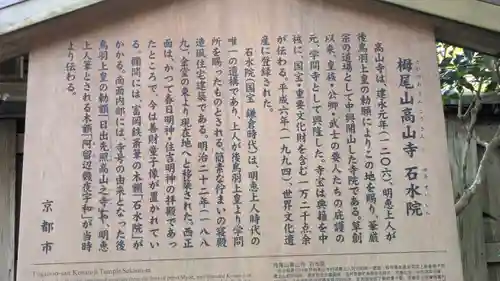 栂尾山高山寺 石水院
高山寺は、建永元年(一二〇六)、明恵上人が
後鳥羽上皇の勅願によりこの地を賜り、華厳
宗の道場として中興開山した寺院である。草創
以来、皇族・公卿・武士の要人たちの庇護の
元、学問寺として興隆した。寺宝は典籍を中
核に国宝・重要文化財を含む一万二千点余
が伝わる。平成六年(一九九四)、世界文化遺
産に登録された。
石水院(国宝 鎌倉時代)は、明恵上人時代の
唯一の遺構であり、上人が後鳥羽上皇より学問
所を賜ったものとされる。簡素な佇まいの寝殿
造風住宅建築である。明治二十二年(一八八
九)、金堂の東より現在地へと移築された。西正
面は、かつて春日明神・住吉明神の拝殿であっ
たところで、今は善財童子像が置かれてい
る。欄間には、富岡鉄斎筆の木額「石水院」が
かかる。南面内部には、寺号の由来となった後
鳥羽上皇の勅額「日出先照高山之寺」や、明恵
上人筆とされる木額「阿留辺畿夜宇和」が当時
より伝わる。
京都市
Toganoo-san Kosanji Temple Sekisuiin
栂尾山高山寺 石水院